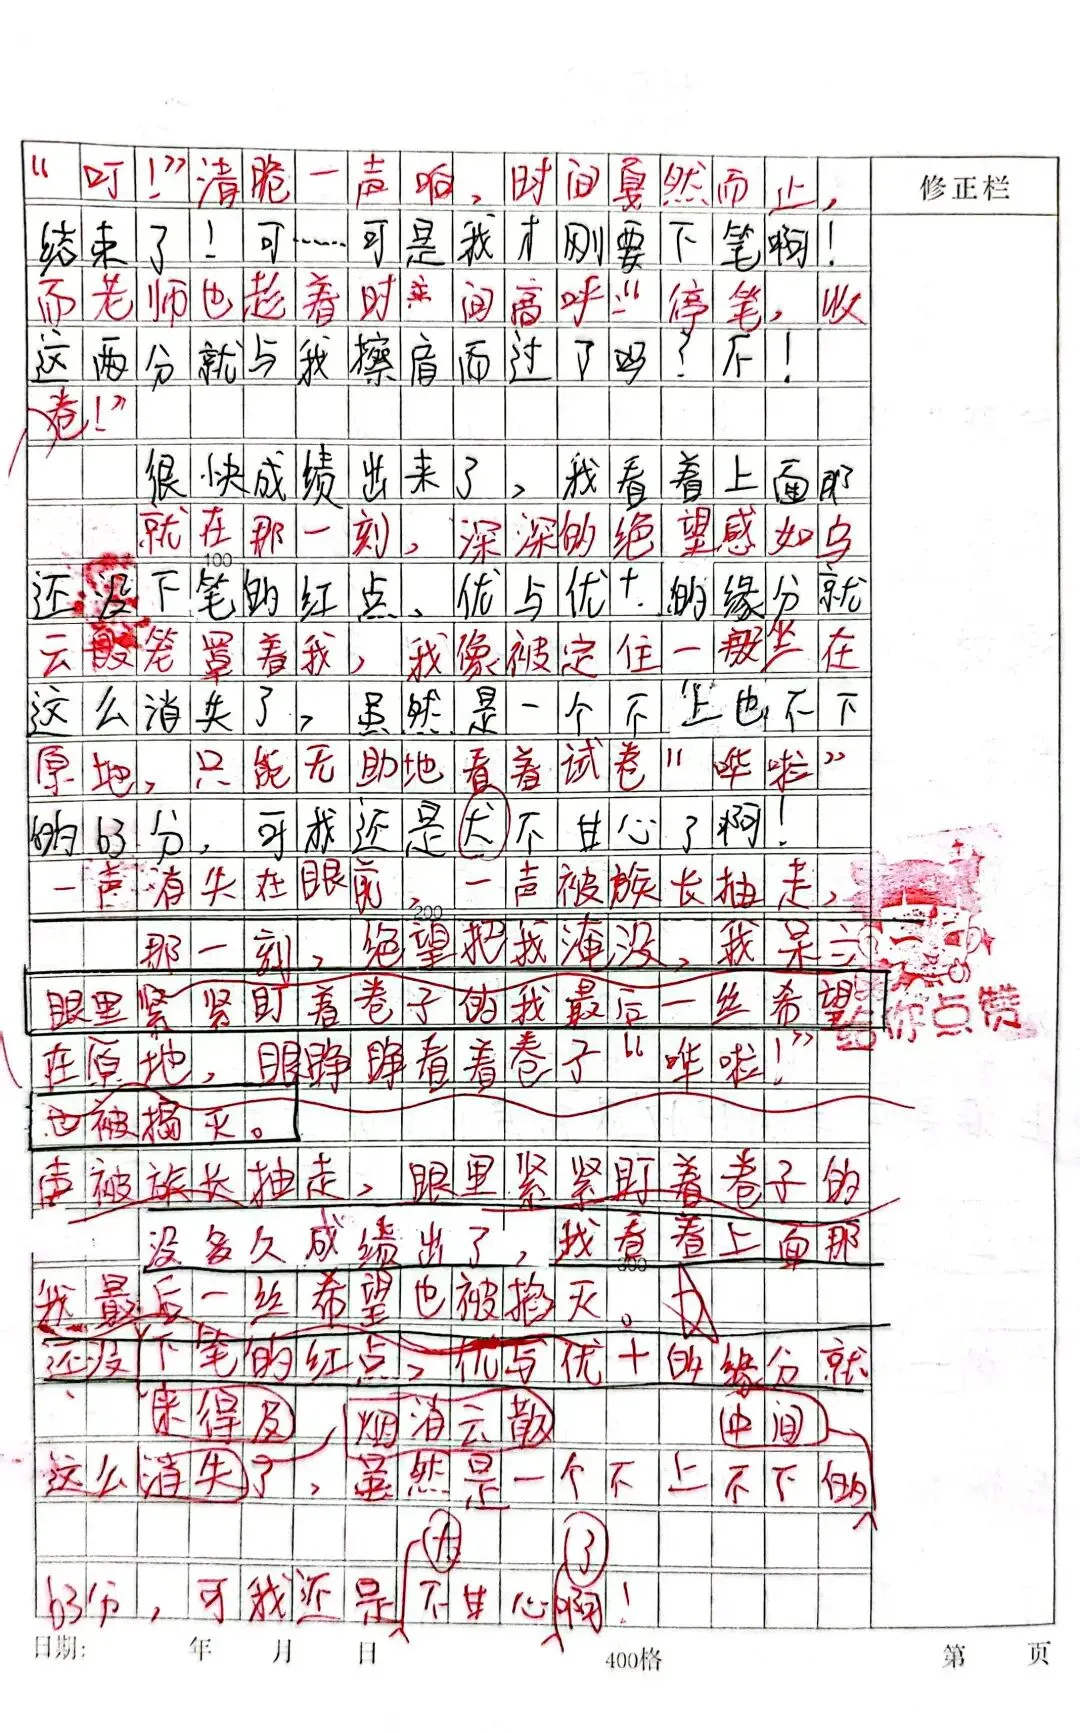 “叮！”清脆一声响，时间戛然而止，
修正栏
结束了！可……可是我才刚要下笔啊！
而老师也趁着时间高呼：“停笔，收
这两分就与我擦肩而过了吗？不！
卷！”
很快成绩出来了，我看着上面那
就在那一刻，深深的绝望感如乌
100
还没下笔的红点，优与优+的缘分就
云般笼罩着我，我像被定住一般坐在
这么消失了，虽然是一个不上也不下
原地，只能无助地看着试卷“哗啦”
的63分，可我还是不甘心了啊！
一声消失在眼前，一声被族长抽走，
200
那一刻，绝望把我淹没，我呆立
眼里紧紧盯着卷子的我最后一丝希望
给你点赞
在原地，眼睁睁看着卷子“哗啦！”
也被掐灭。
声被族长抽走，眼里紧紧盯着卷子的
没多久成绩出了，我看着上面那
300
我最后一丝希望也被掐灭。
还没下笔的红点，优与优+的缘分就
来得及 烟消云散 中间
这么消失了，虽然是一个不上不下的
了
63分，可我还是不甘心啊！
日期： 年 月 日 400格 第 页